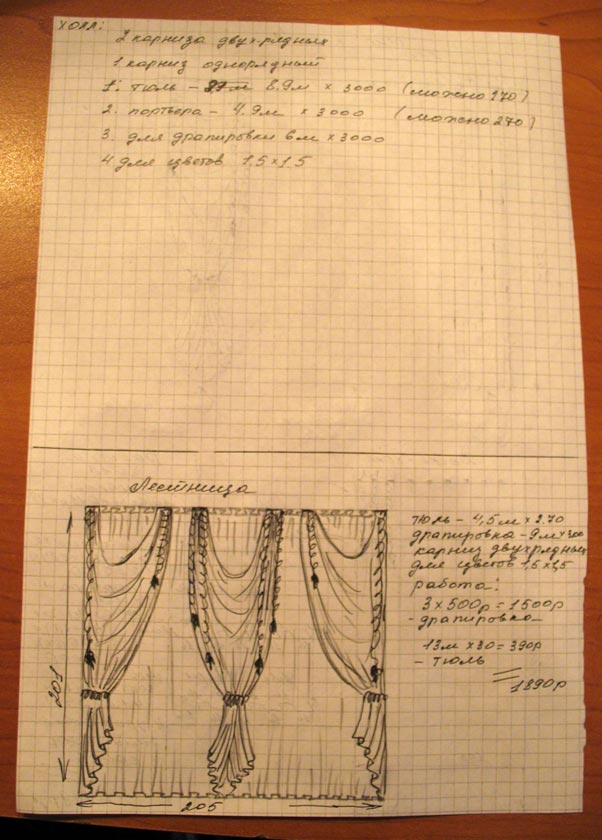 ХОЛЛ:
2 карниза двух-рядных
1 карниз однорядный
1. тюль - 8.9м × 3000 (можно 270)
2. портьера - 4.9м × 3000 (можно 270)
3. для драпировки 6м × 3000
4 для цветов 1.5 × 1.5
Лестница
тюль - 4,5м × 2.70
драпировка - 9м × 300
карниз двухрядный
для цветов 1.5 × 1.5
работа:
3 × 500р = 1500р
- драпировка
13м × 30 = 390р
- тюль
1890р
201
205